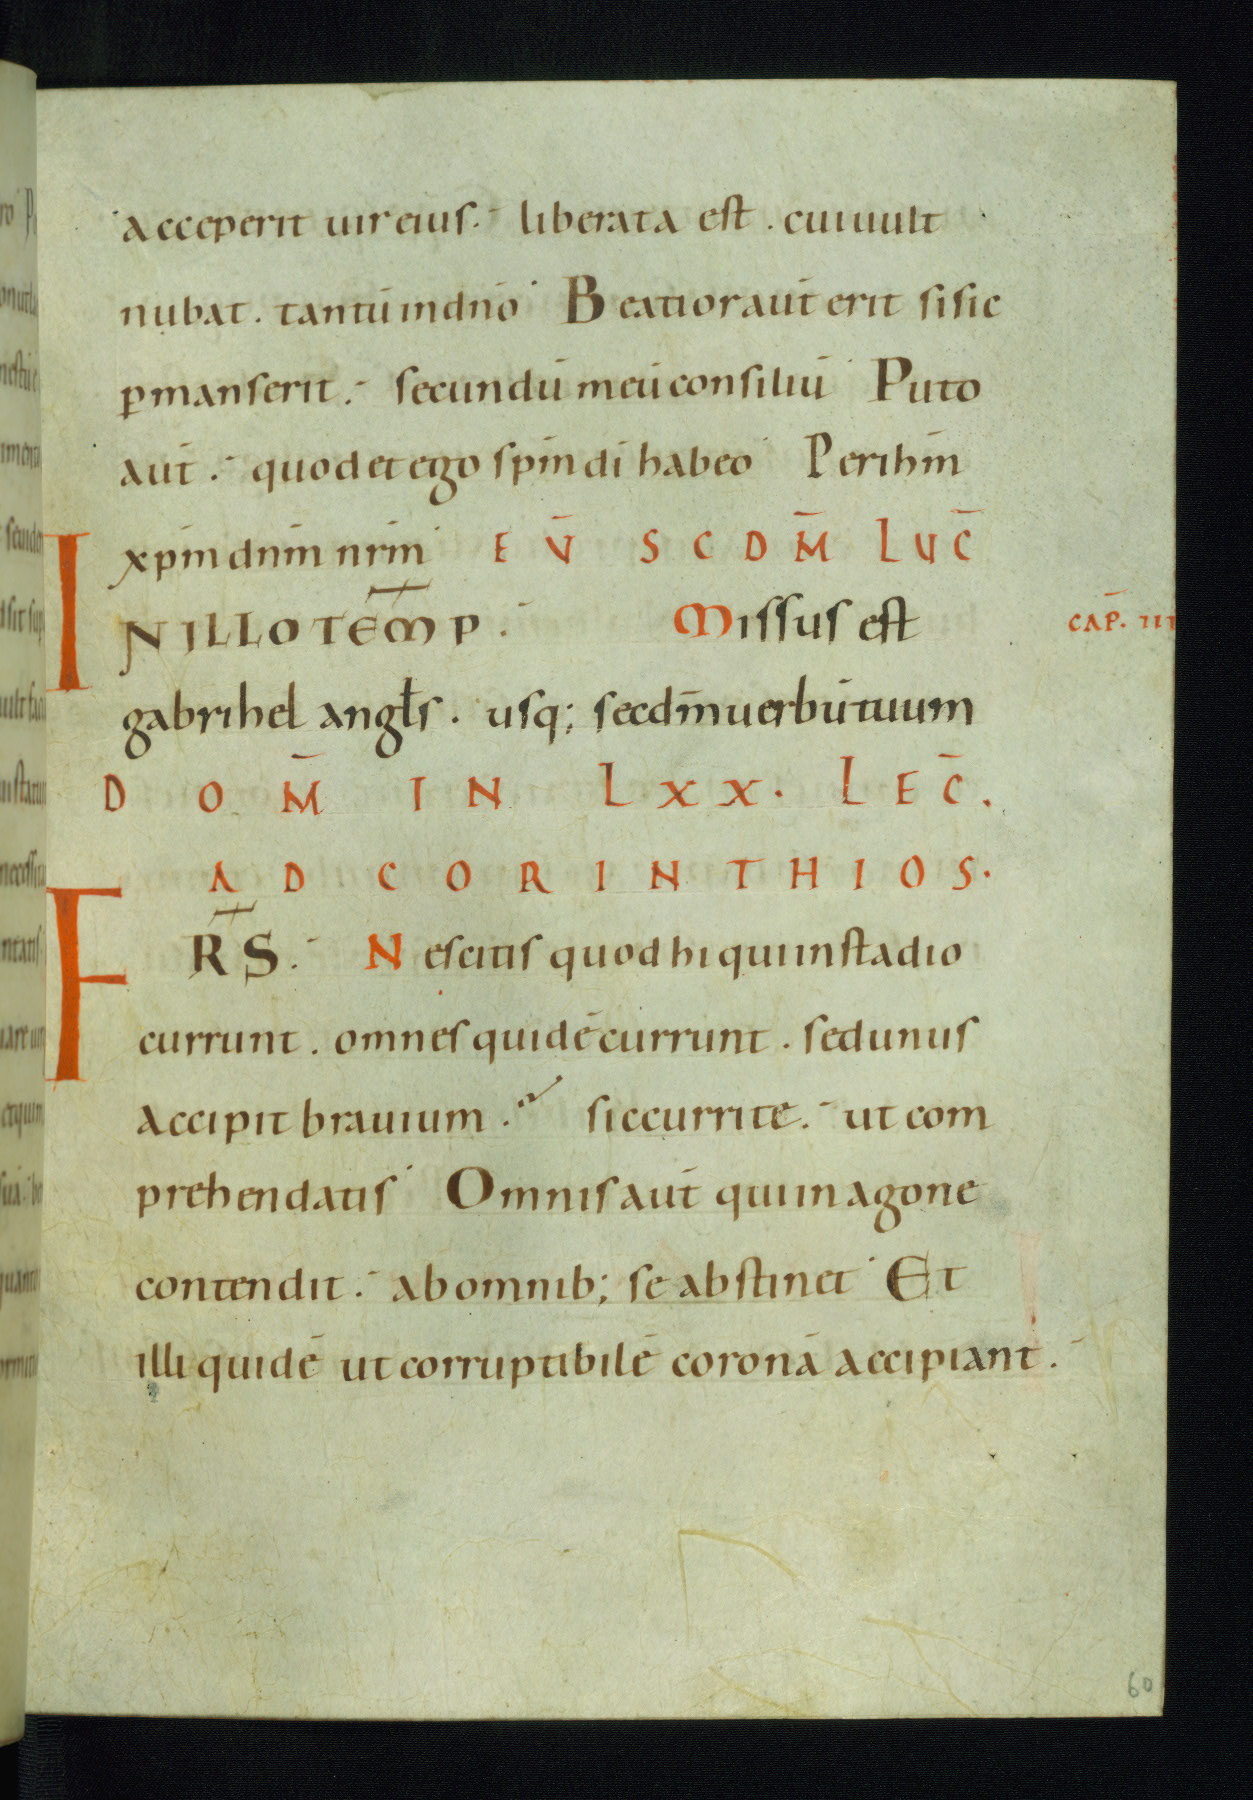 acceperit uir eius. liberata est. cui uult
nubat. tantū in dn̄o Beatior aut̄ erit si sic
ꝑmanserit. secundū meū consiliū Puto
aut̄. quod et ego sp̄m di habeo Per ihm̄
xp̄m dn̄m nr̄m EV̄ SCDM̄ LUC̄
INILLO TEM̄P. Missus est
CAP̄. III
gabrihel angłs. usq; secdm̄ uerbū tuum
DOM̄ IN LXX. LEC̄.
AD CORINTHIOS.
FR̄S. Nescitis quod hi qui in stadio
currunt. omnes quidē currunt. sed unus
accipit brauium. sic currite. ut com
prehendatis Omnis aut̄ qui in agone
contendit. ab omnib; se abstinet Et
illi quidē ut corruptibilē coronā accipiant.
60